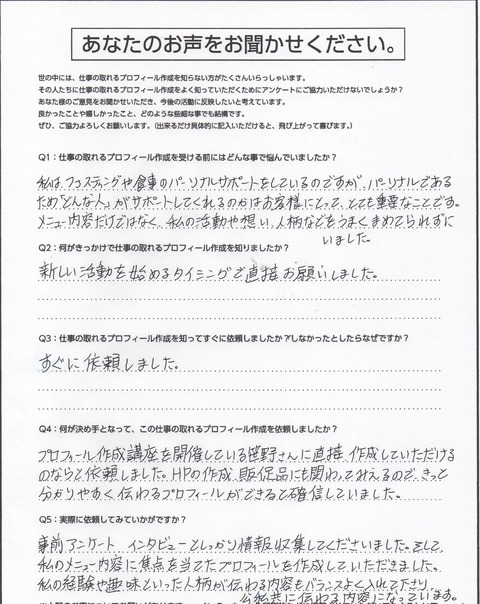 あなたのお声をお聞かせください。
世の中には、仕事の取れるプロフィール作成を知らない方がたくさんいらっしゃいます。
その人たちに仕事の取れるプロフィール作成をよく知っていただくためにアンケートにご協力いただけないでしょうか？
あなた様のご意見をお聞かせいただき、今後の活動に反映したいと考えています。
良かったことや嬉しかったこと、どのような些細な事でも結構です。
ぜひ、ご協力よろしくお願いします。（出来るだけ具体的に記入いただけると、飛び上がって喜びます。）
Q1：仕事の取れるプロフィール作成を受ける前にはどんな事で悩んでいましたか？
私はファスティングや食事のパーソナルサポートをしているのですが、パーソナルである
ため"どんな人"がサポートしてくれるのかはお客様にとって、とても重要なことです。
メニュー内容だけではなく、私の活動や想い、人柄などをうまくまとめてられずに
いました。
Q2：何がきっかけで仕事の取れるプロフィール作成を知りましたか？
新しい活動を始めるタイミングで直接お願いしました。
Q3：仕事の取れるプロフィール作成を知ってすぐに依頼しましたか？しなかったとしたらなぜですか？
すぐに依頼しました。
Q4：何が決め手となって、この仕事の取れるプロフィール作成を依頼しましたか？
プロフィール作成講座を開催している笹野さんに直接作成していただける
のならと依頼しました。HPの作成、販促品にも関わってみえるので、きっと
分かりやすく伝わるプロフィールができると確信していました。
Q5：実際に依頼してみていかがですか？
事前アンケート、インタビューとしっかり情報収集してくださいました。そして、
私のメニュー内容に焦点を当てたプロフィールを作成していただきました。
私の経験や趣味といった人柄が伝わる内容もバランスよく入れて下さり、
公私共に伝わる内容になっています。